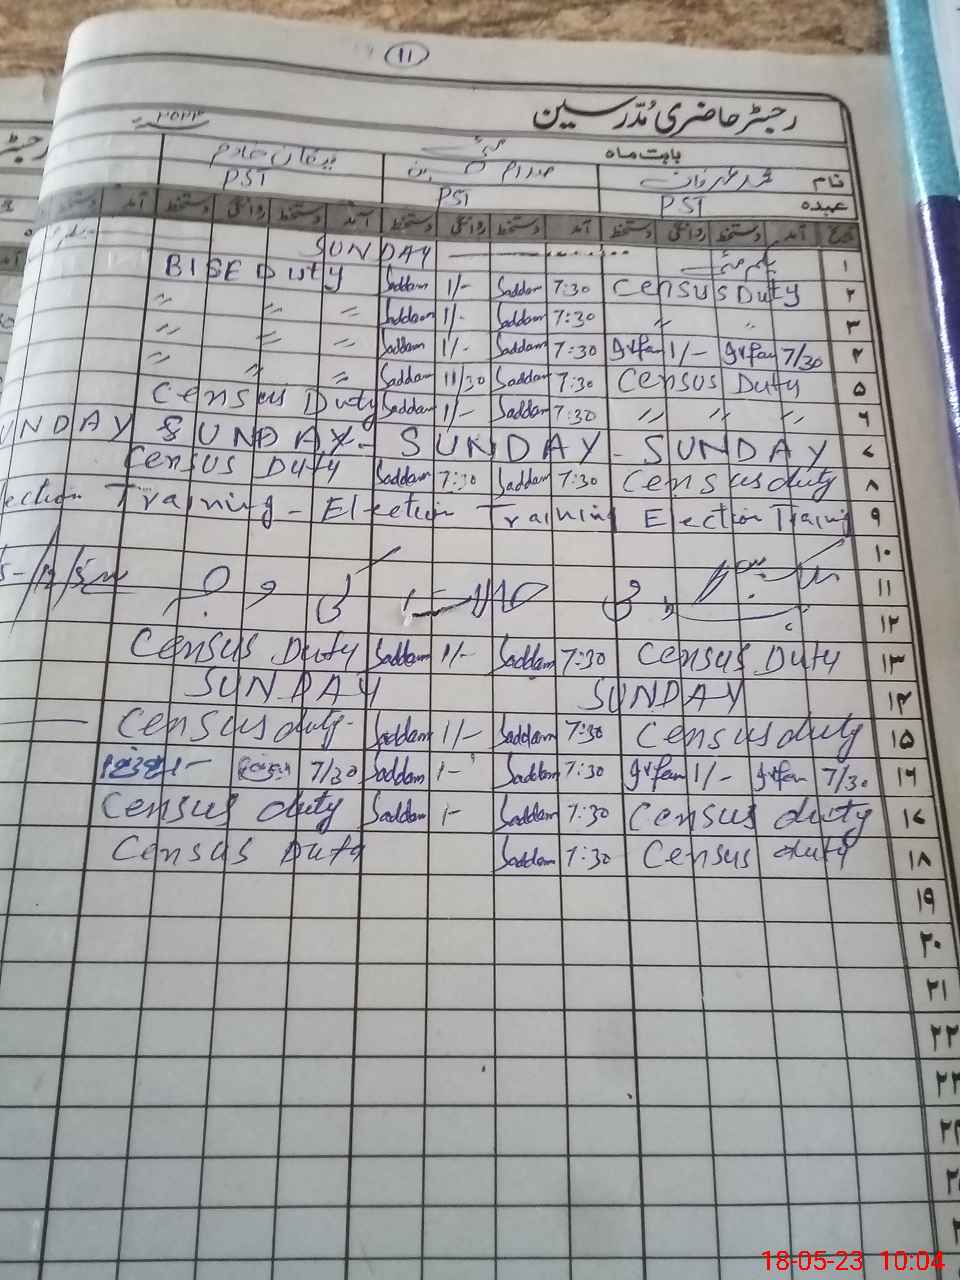 11
رجسٹر حاضری مُدّرسین
بابت ماہ مئی ۲۰۲۳
نام محمد عرفان
عہدہ PST PST PST
تاریخ آمد دستخط روانگی دستخط آمد دستخط روانگی دستخط آمد دستخط روانگی دستخط آمد
۱ یکم مئی SUNDAY
۲ Census Duty 7:30 Saddam 1/- Saddam BISE Duty
۳ " " 7:30 Saddam 1/- Saddam " " "
۴ 7/30 Irfan 1/- Irfan 7:30 Saddam 1/- Saddam " " "
۵ Census Duty 7:30 Saddam 11/30 Saddam " " "
۶ " " " 7:30 Saddam 1/- Saddam Census Duty
۷ SUNDAY - SUNDAY - SUNDAY UNDAY
۸ Census duty 7:30 Saddam 7:30 Saddam Census Duty
۹ Election Training Election Training - Election Training
۱۰
۱۱
۱۲
۱۳ Census Duty 7:30 Saddam 1/- Saddam Census Duty
۱۴ SUNDAY SUNDAY
۱۵ Census duty 7:30 Saddam 1/- Saddam Census duty
۱۶ 7/30 Irfan 1/- Irfan 7:30 Saddam 1- Saddam 7/30
۱۷ Census duty 7:30 Saddam 1- Saddam Census duty
۱۸ Census duty 7:30 Saddam Census Duty
۱۹
۲۰
۲۱
۲۲
۲۳
۲۴
18-05-23 10:04